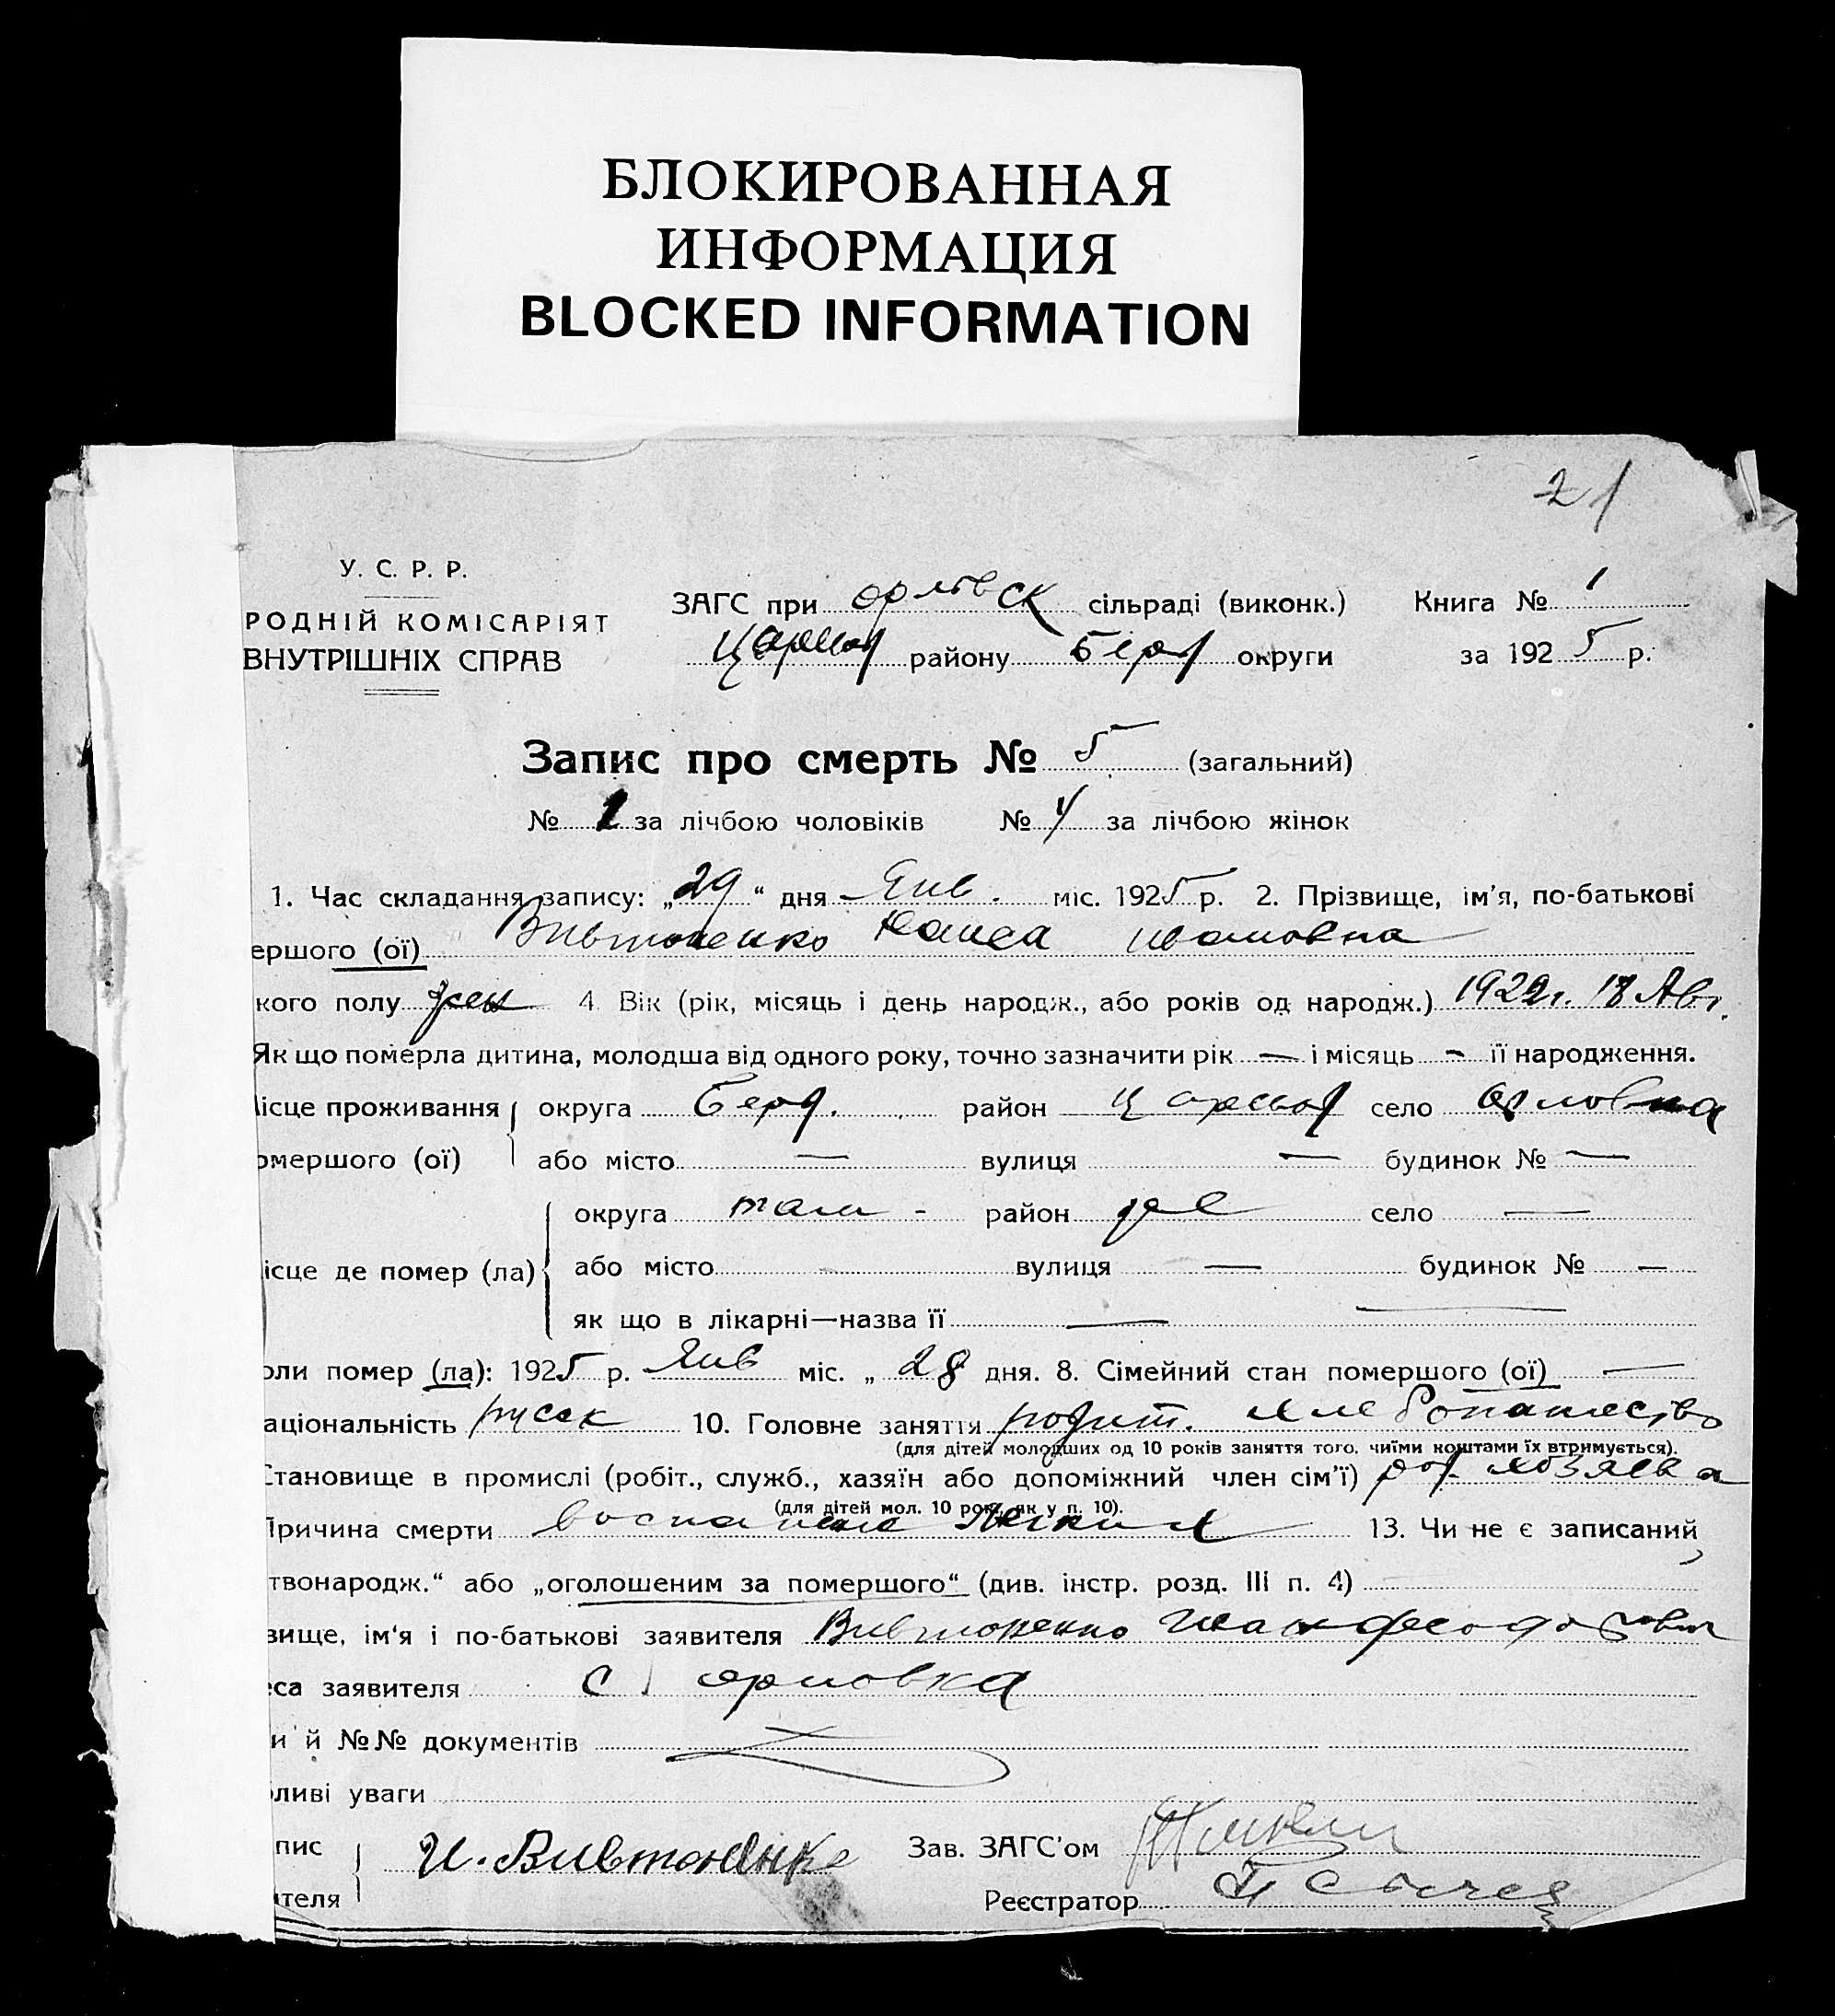 БЛОКИРОВАННАЯ
ИНФОРМАЦИЯ
BLOCKED INFORMATION
21
У. С. Р. Р.
РОДНІЙ КОМІСАРІЯТ
ВНУТРІШНІХ СПРАВ
ЗАГС при сільраді (виконк.) Книга № 1
району округи за 1925 р.
Запис про смерть № 5 (загальний)
№ за лічбою чоловіків № 4 за лічбою жінок
1. Час складання запису: „29“ дня Янв. міс. 1925 р. 2. Прізвище, ім'я, по-батькові
ершого (ої) Ивановна
кого полу жен 4 Вік (рік, місяць і день народж., або років од народж.) 1922 г. 18 Авг.
Як що померла дитина, молодша від одного року, точно зазначити рік — і місяць - її народження.
ісце проживання округа Берд. район село Орловка
омершого (ої) або місто — вулиця — будинок № —
округа там - район же село —
ісце де помер (ла) або місто вулиця — будинок № —
як що в лікарні—назва її —
оли помер (ла): 1925 р. Янв міс. „28 дня. 8. Сімейний стан помершого (ої) —
аціональність русск 10. Головне заняття родит.
(для дітей молодших од 10 років заняття того, чиїми коштами їх втримується).
Становище в промислі (робіт., служб., хазяїн або допоміжний член сім'ї) хозяева
(для дітей мол. 10 рок., як у п. 10).
Причина смерти воспаление легких 13. Чи не є записаний
твонародж.“ або „оголошеним за помершого“ (див. інстр. розд. III п. 4)
вище, ім'я і по-батькові заявителя Вивтоненко Иван Феодосович
еса заявителя с. Орловка
и й №№ документів
ливі уваги
пис И. Вивтоненко Зав. ЗАГС'ом
ителя Реєстратор